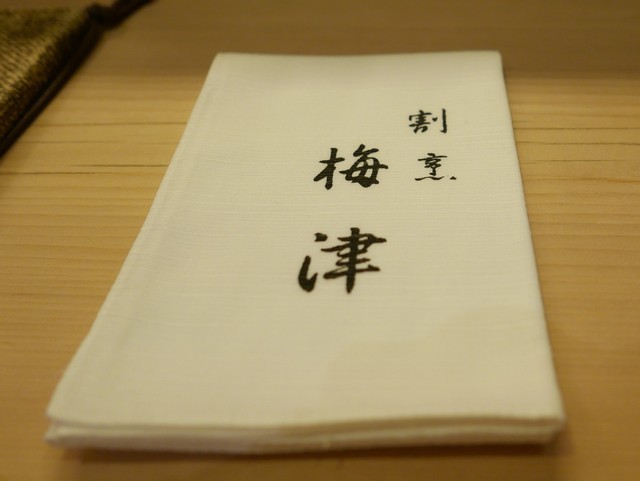 割烹
梅津